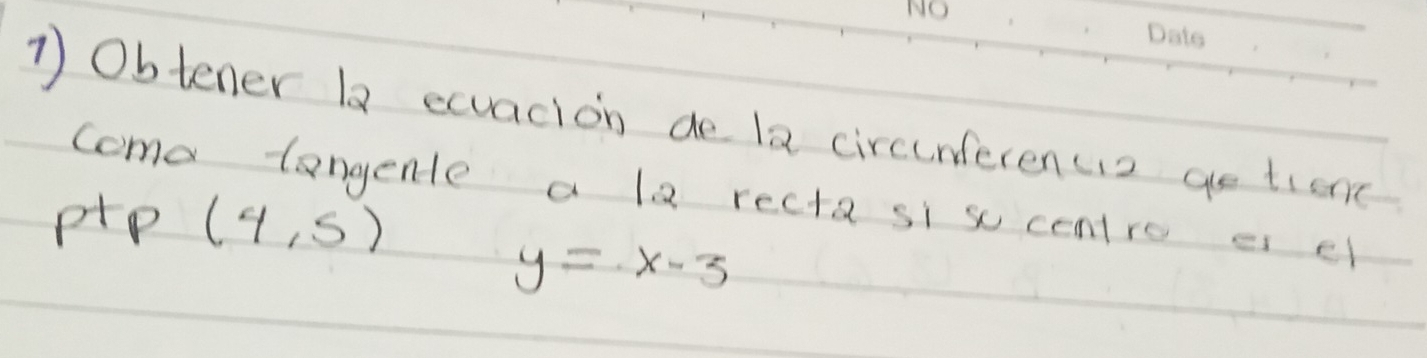 NO
Date
1) Obtener la ecuación de la circunferencia que tiene
como tangente a la recta si su centro es el
pto (4,5) y = x - 3